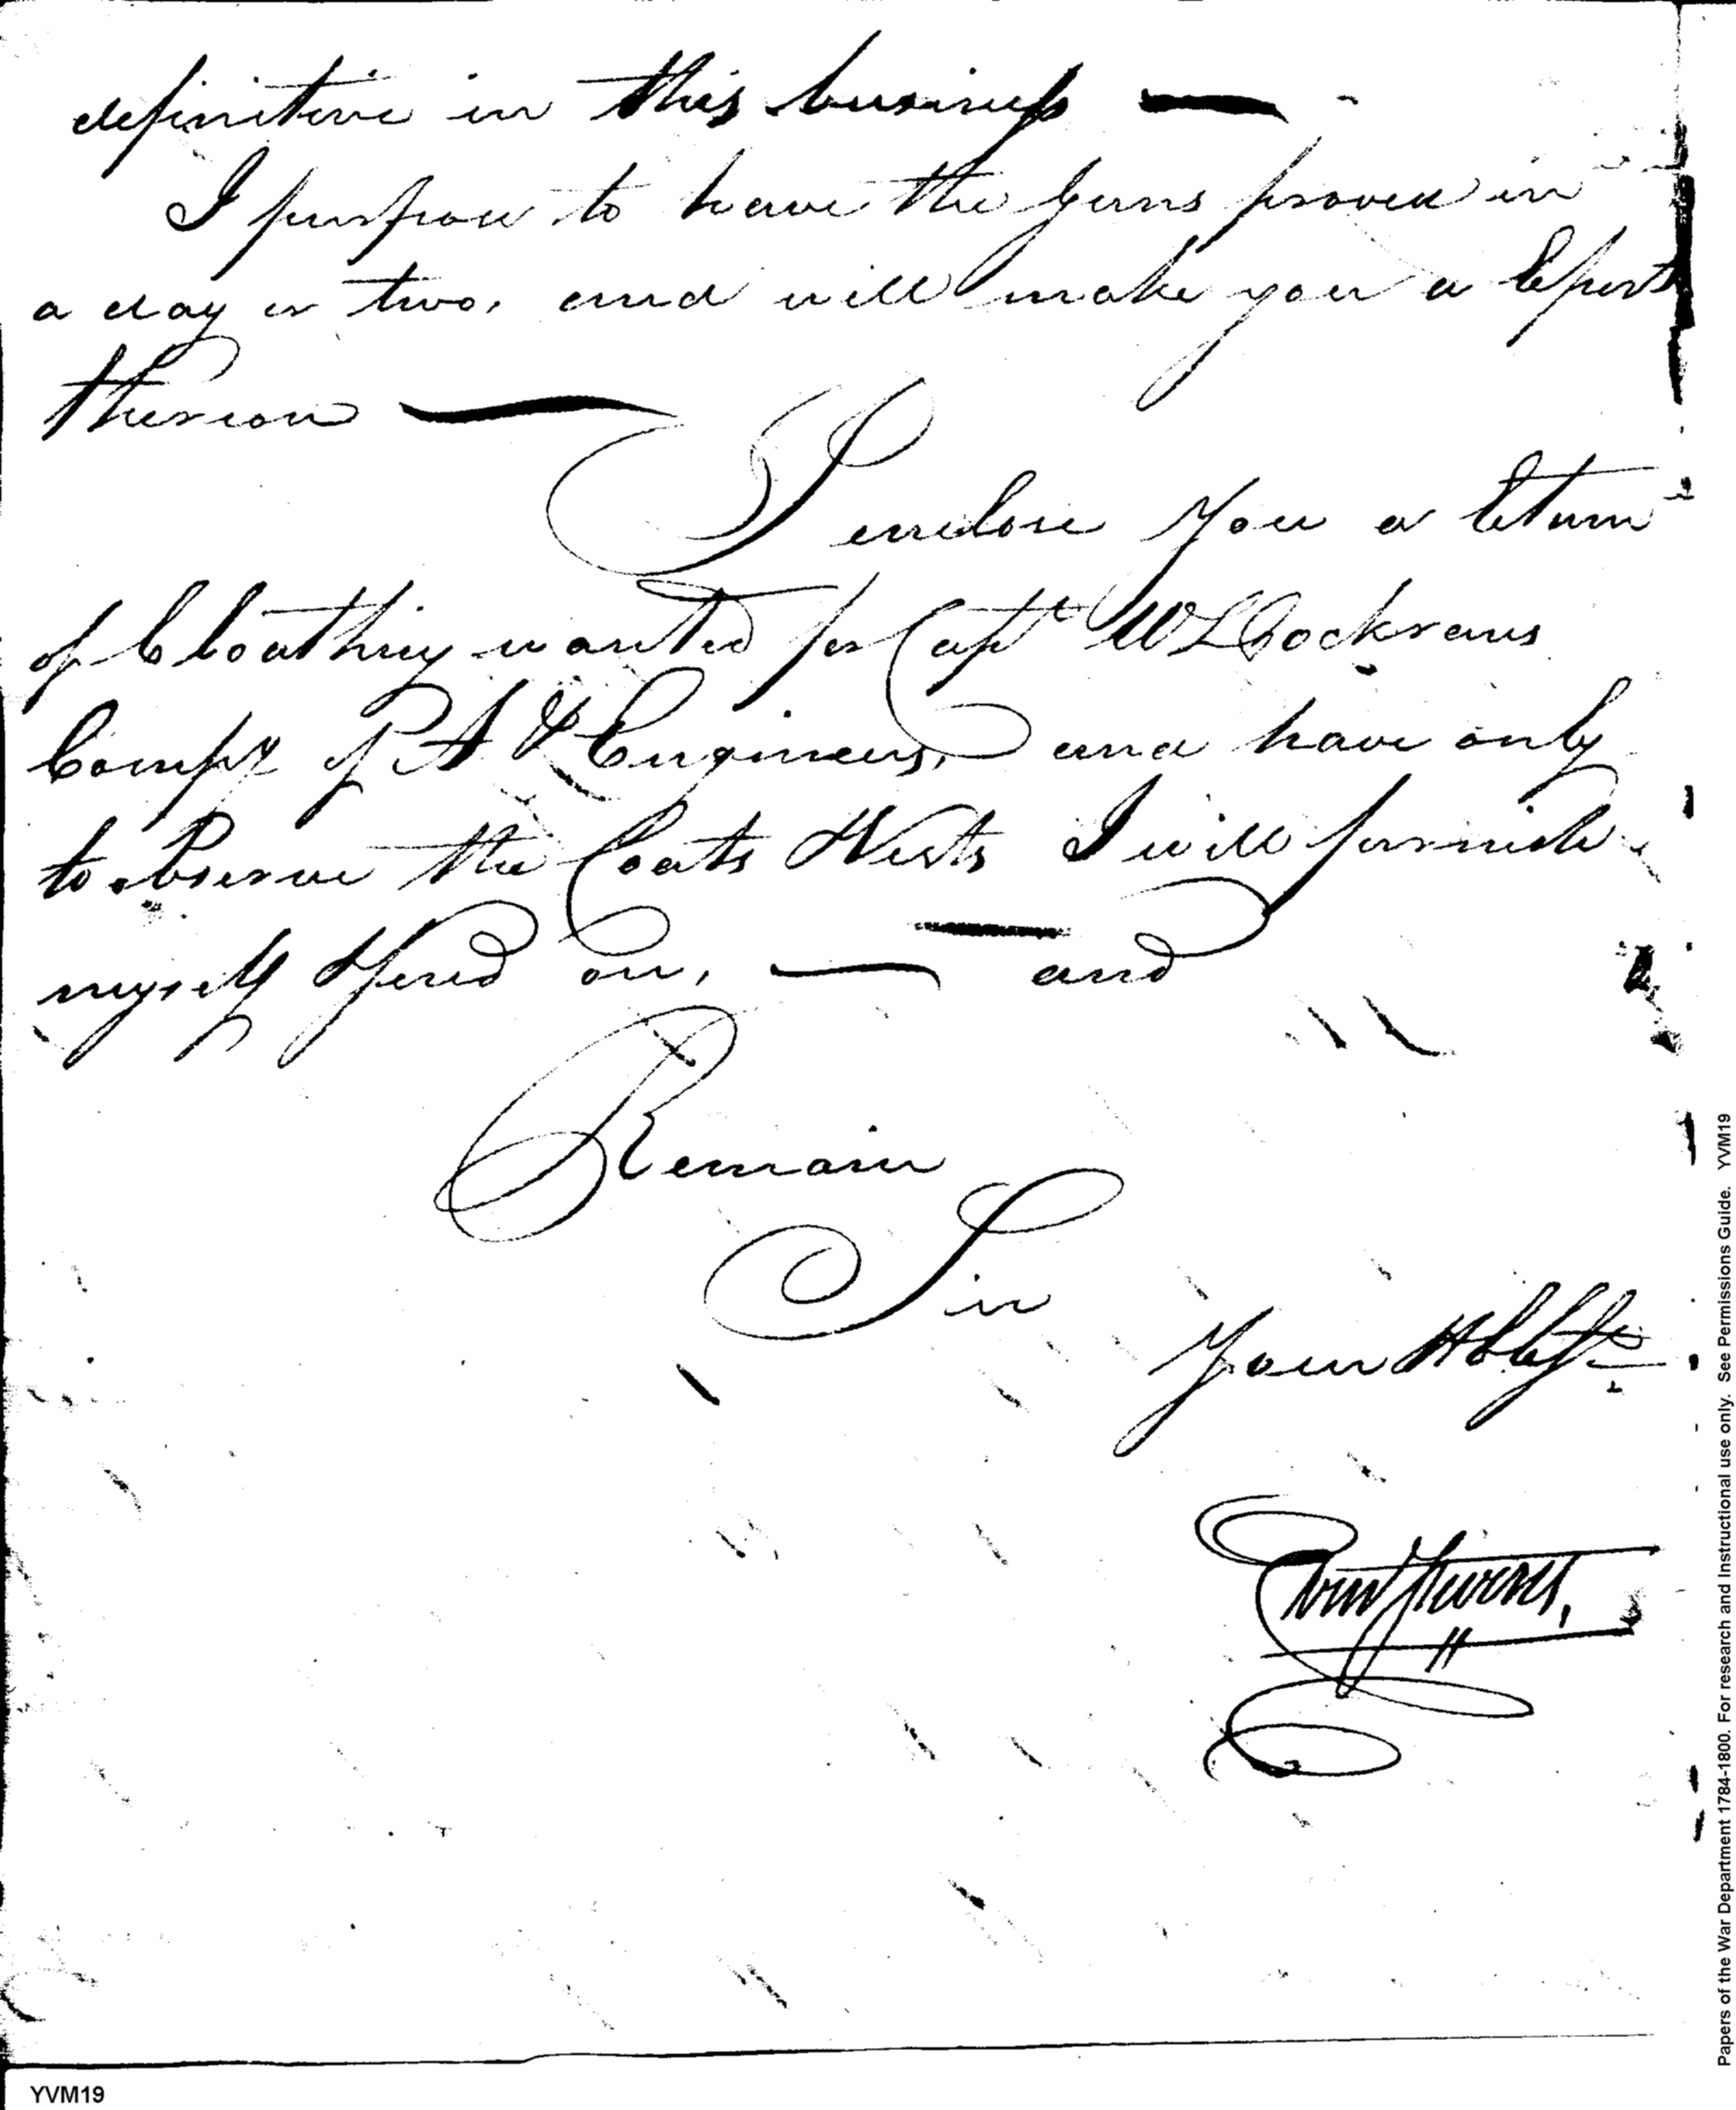 definitive in this business —
I purpose to have the guns proved in
a day or two, and will make you a Report
thereon —
I enclose you a Return
of Cloathing wanted for Capt W L Cockrans
Compy of R A & Engineers, and have only
to observe the Coats & Vests I will furnish
myself &
on, — and
Remain
Sir
Your Hble St
YVM19
Papers of the War Department 1784-1800. For research and Instructional use only. See Permissions Guide. YVM19